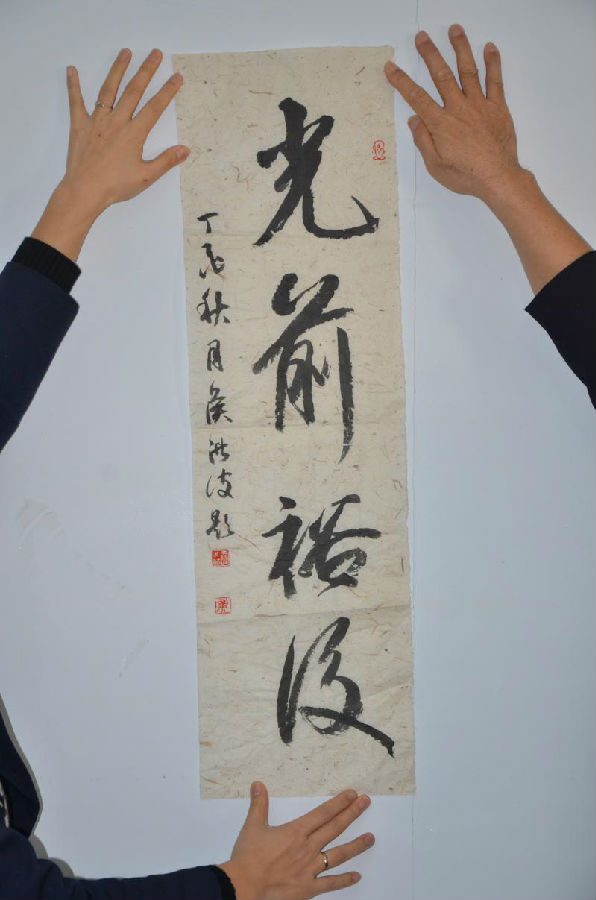 光前裕後
丁酉秋月侯洪波题